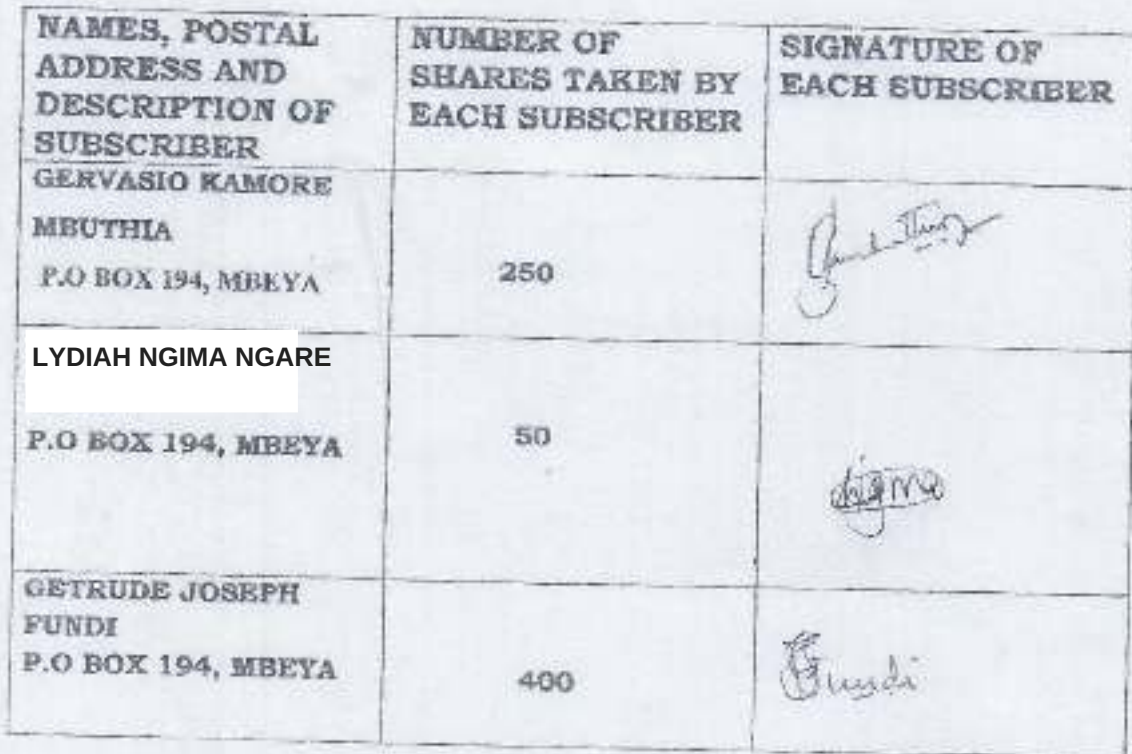 NAMES, POSTAL
ADDRESS AND
DESCRIPTION OF
SUBSCRIBER
NUMBER OF
SHARES TAKEN BY
EACH SUBSCRIBER
SIGNATURE OF
EACH SUBSCRIBER
GERVASIO KAMORE
MBUTHIA
P.O BOX 194, MBEYA
250
LYDIAH NGIMA NGARE
P.O BOX 194, MBEYA
50
GETRUDE JOSEPH
FUNDI
P.O BOX 194, MBEYA
400
Fundi